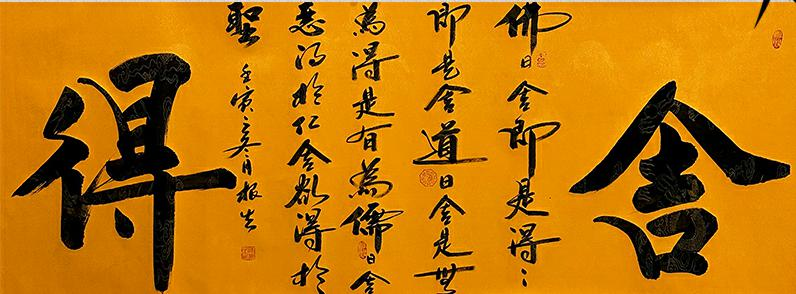 舍
佛曰舍即是得〻
即是舍道曰舍是無
為得是有為儒曰舍
惡得於仁舍欲得於
聖
壬寅冬月根生
得